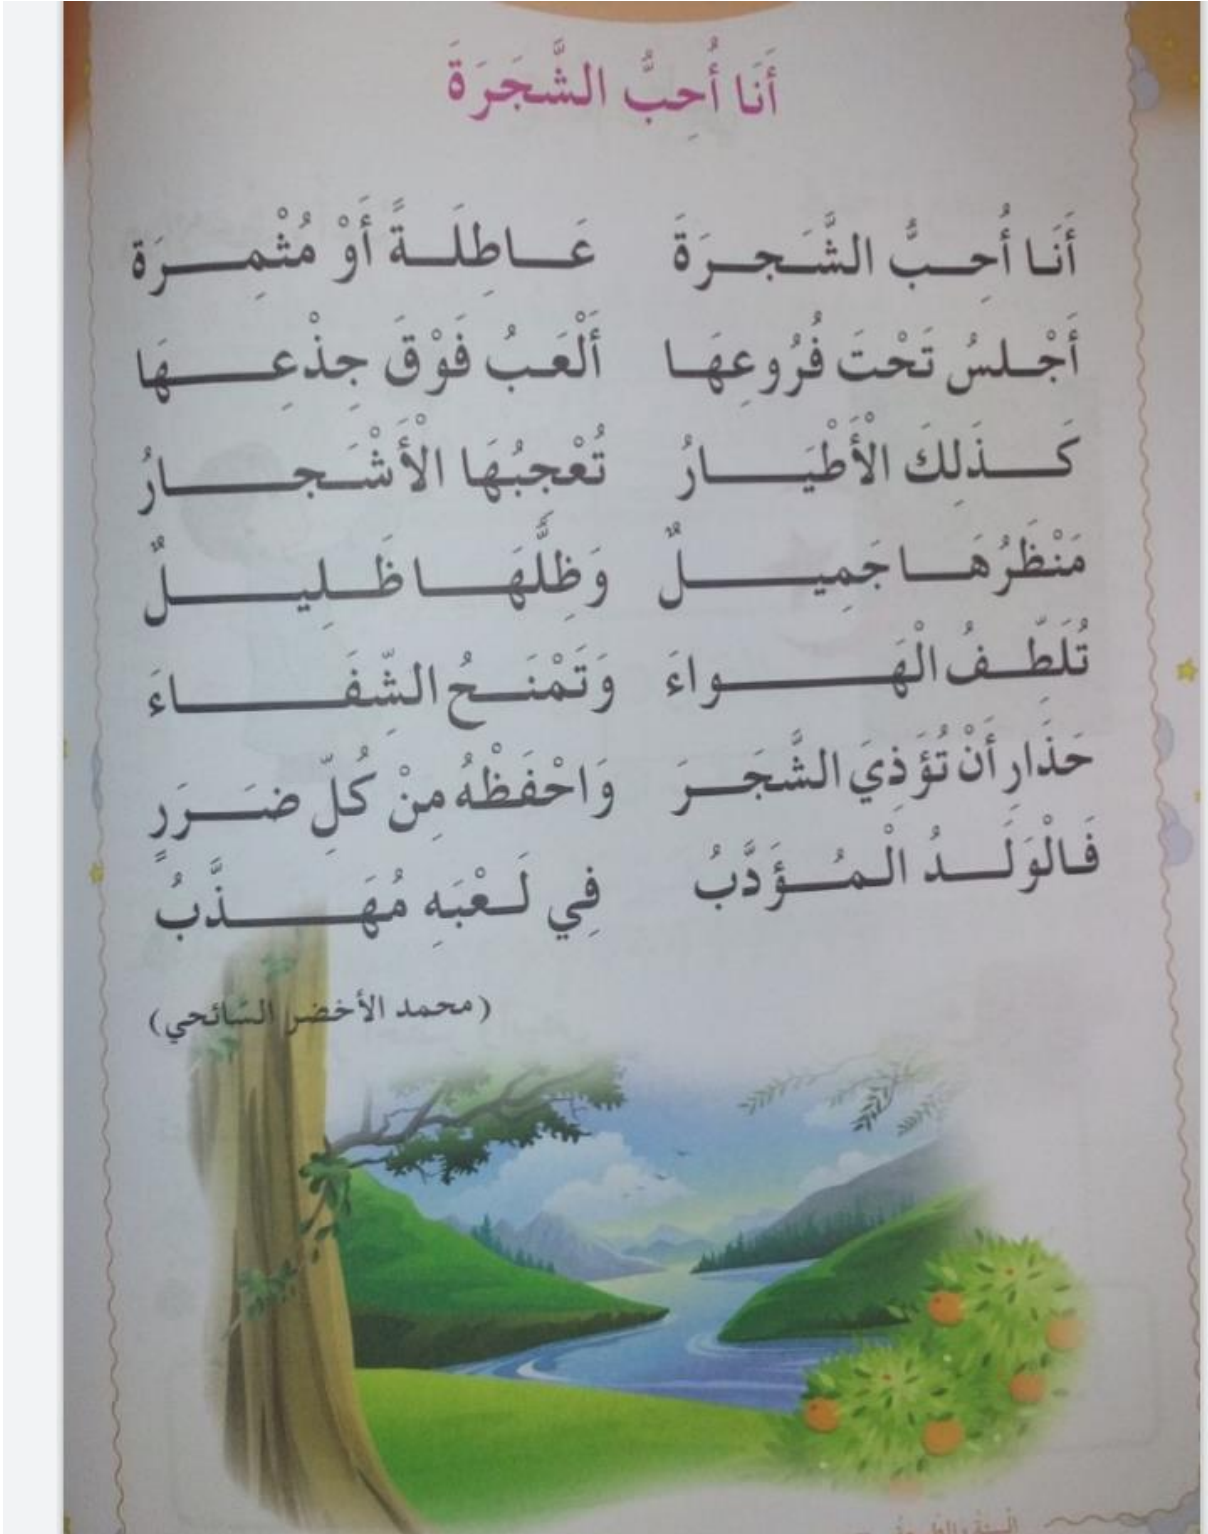 أَنَا أُحِبُّ الشَّجَرَةَ
أَنَا أُحِبُّ الشَّجَرَةَ عَاطِلَةً أَوْ مُثْمِرَة
أَجْلسُ تَحْتَ فُرُوعِهَا أَلْعَبُ فَوْقَ جِذْعِهَا
كَذَلِكَ الْأَطْيَارُ تُعْجِبُهَا الْأَشْجارُ
مَنْظَرُهَا جَمِيلٌ وَظِلَّهَا ظَلِيلٌ
تُلَطِّفُ الْهَواءَ وَتَمْنَحُ الشِّفَاءَ
حَذَارِ أَنْ تُؤَذِيَ الشَّجَرَ وَاحْفَظْهُ مِنْ كُلِّ ضَرَرٍ
فَالْوَلَدُ الْمُؤَدَّبُ فِي لَعْبَهِ مُهَذَّبُ
(محمد الأخضر السّائحي)